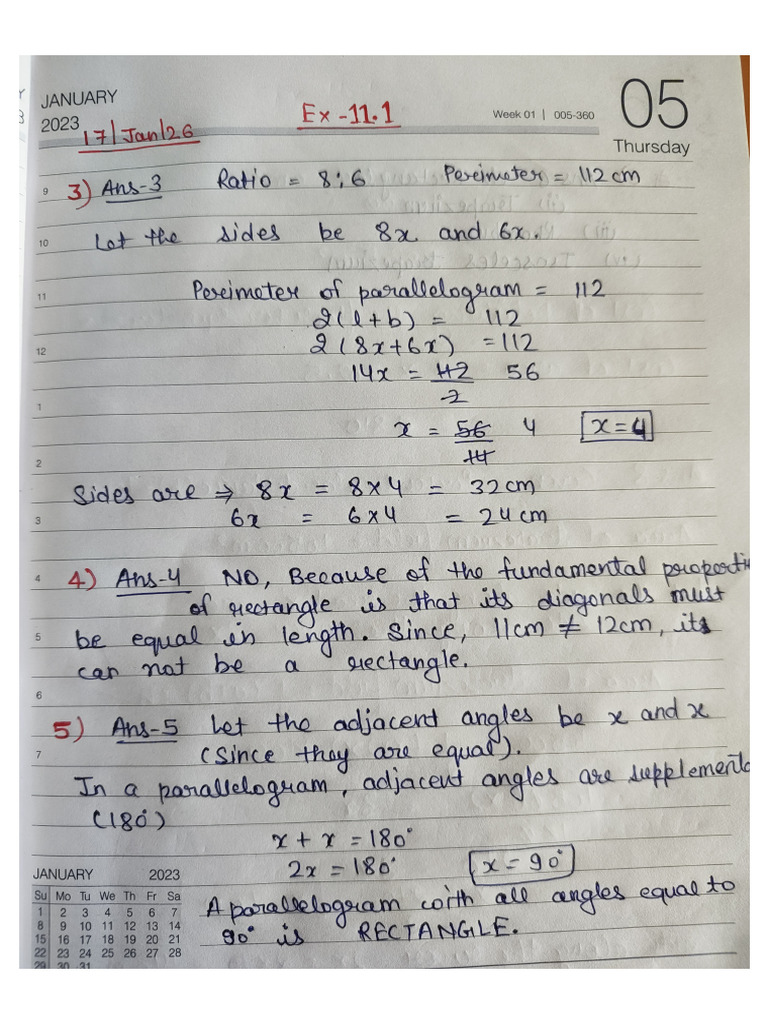 JANUARY
2023
17/Jan/26
Ex-11.1
Week 01 | 005-360
05
Thursday
9
3) Ans-3 Ratio = 8:6 Perimeter = 112 cm
10
Let the sides be 8x and 6x.
11
Perimeter of parallelogram = 112
2(l+b) = 112
12
2(8x+6x) = 112
14x = 112/2 56
1
x = 56/14 4 x=4
2
Sides are ⇒ 8x = 8×4 = 32cm
3
6x = 6×4 = 24cm
4
4) Ans-4 NO, Because of the fundamental properti
of rectangle is that its diagonals must
5
be equal in length. Since, 11cm ≠ 12cm, its
can not be a rectangle.
6
5) Ans-5 Let the adjacent angles be x and x
7
(Since they are equal).
In a parallelogram, adjacent angles are supplementa
(180°)
x + x = 180°
2x = 180° x = 90°
A parallelogram with all angles equal to
90° is RECTANGLE.
JANUARY 2023
Su Mo Tu We Th Fr Sa
1 2 3 4 5 6 7
8 9 10 11 12 13 14
15 16 17 18 19 20 21
22 23 24 25 26 27 28
29 30 31